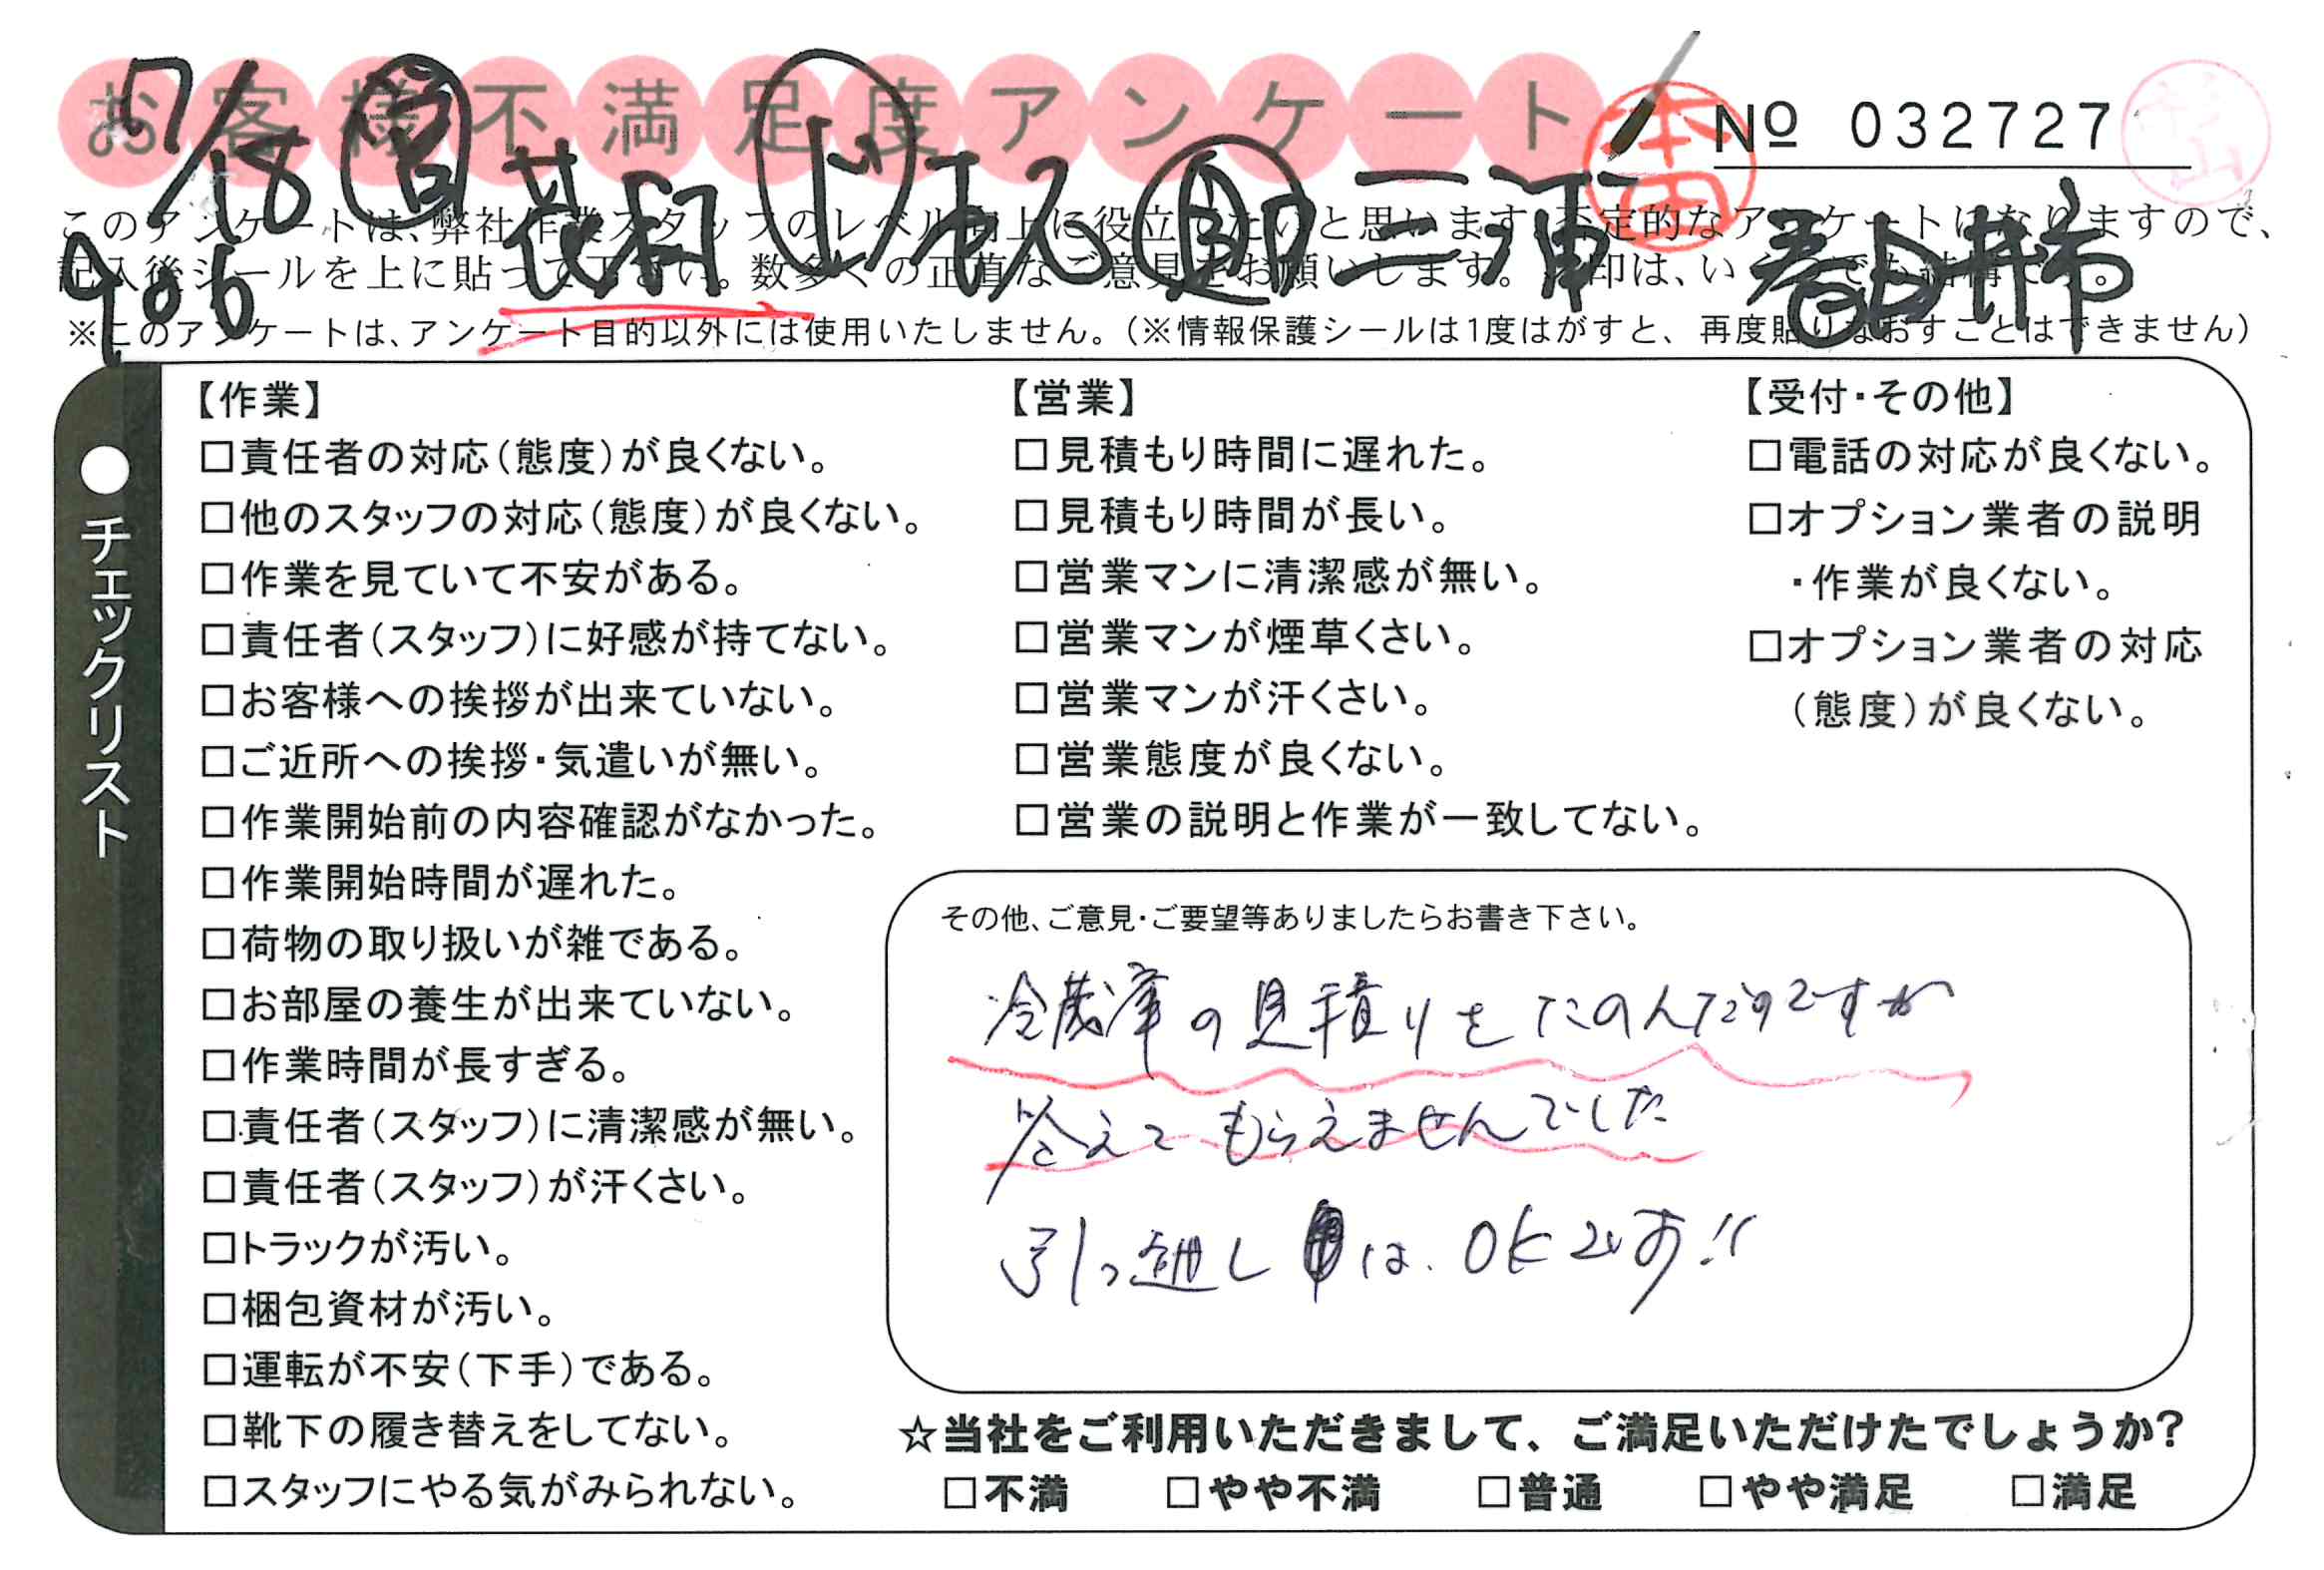 お客様不満足度アンケート
№ 032727
本田
杉山
7/18
906
三浦
春日井市
このアンケートは、弊社作業スタッフのレベル向上に役立てたいと思います。否定的なアンケートになりますので、
記入後シールを上に貼って下さい。数多くの正直なご意見をお願いします。
※このアンケートは、アンケート目的以外には使用いたしません。(※情報保護シールは1度はがすと、再度貼りなおすことはできません)
●チェックリスト
【作業】
□責任者の対応(態度)が良くない。
□他のスタッフの対応(態度)が良くない。
□作業を見ていて不安がある。
□責任者(スタッフ)に好感が持てない。
□お客様への挨拶が出来ていない。
□ご近所への挨拶・気遣いが無い。
□作業開始前の内容確認がなかった。
□作業開始時間が遅れた。
□荷物の取り扱いが雑である。
□お部屋の養生が出来ていない。
□作業時間が長すぎる。
□責任者(スタッフ)に清潔感が無い。
□責任者(スタッフ)が汗くさい。
□トラックが汚い。
□梱包資材が汚い。
□運転が不安(下手)である。
□靴下の履き替えをしてない。
□スタッフにやる気がみられない。
【営業】
□見積もり時間に遅れた。
□見積もり時間が長い。
□営業マンに清潔感が無い。
□営業マンが煙草くさい。
□営業マンが汗くさい。
□営業態度が良くない。
□営業の説明と作業が一致してない。
【受付・その他】
□電話の対応が良くない。
□オプション業者の説明
・作業が良くない。
□オプション業者の対応
(態度)が良くない。
その他、ご意見・ご要望等ありましたらお書き下さい。
冷蔵庫の見積りをたのんだのですが
答えてもらえませんでした
引っ越しは、OKです!!
☆当社をご利用いただきまして、ご満足いただけたでしょうか?
□不満 □やや不満 □普通 □やや満足 □満足